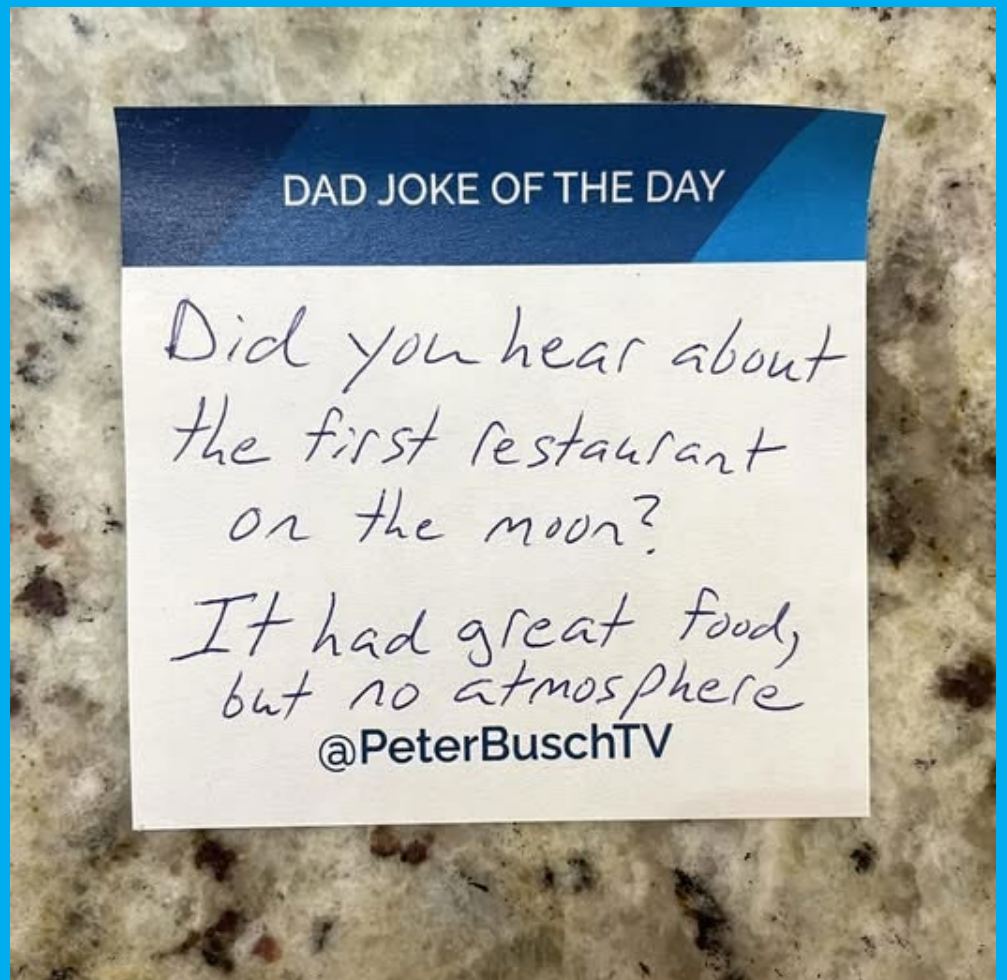 DAD JOKE OF THE DAY
Did you hear about
the first restaurant
on the moon?
It had great food,
but no atmosphere
@PeterBuschTV